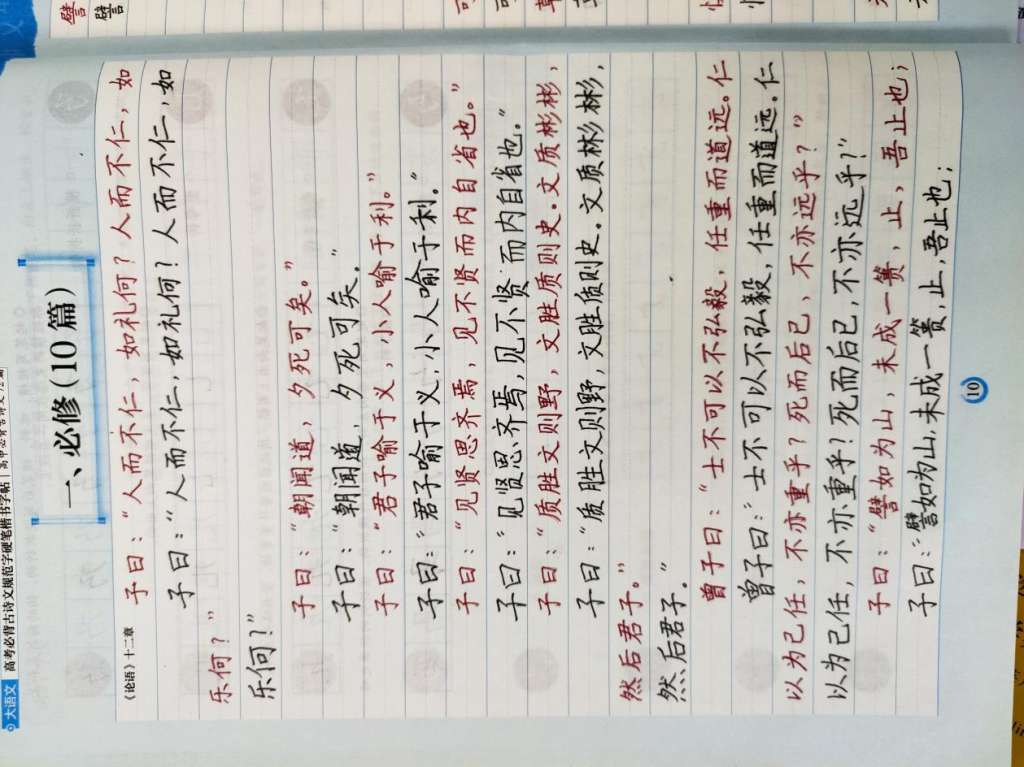 大语文 高考必背古诗文规范字硬笔楷书字帖
一、必修（10篇）
《论语》十二章
子曰：“人而不仁，如礼何？人而不仁，如
子曰：“人而不仁，如礼何？人而不仁，如
乐何？”
乐何？”
子曰：“朝闻道，夕死可矣。”
子曰：“朝闻道，夕死可矣。”
子曰：“君子喻于义，小人喻于利。”
子曰：“君子喻于义，小人喻于利。”
子曰：“见贤思齐焉，见不贤而内自省也。”
子曰：“见贤思齐焉，见不贤而内自省也。”
子曰：“质胜文则野，文胜质则史。文质彬彬，
子曰：“质胜文则野，文胜质则史。文质彬彬，
然后君子。”
然后君子。”
曾子曰：“士不可以不弘毅，任重而道远。仁
曾子曰：“士不可以不弘毅，任重而道远。仁
以为己任，不亦重乎？死而后已，不亦远乎？”
以为己任，不亦重乎？死而后已，不亦远乎？”
子曰：“譬如为山，未成一篑，止，吾止也；
子曰：“譬如为山，未成一篑，止，吾止也；
10